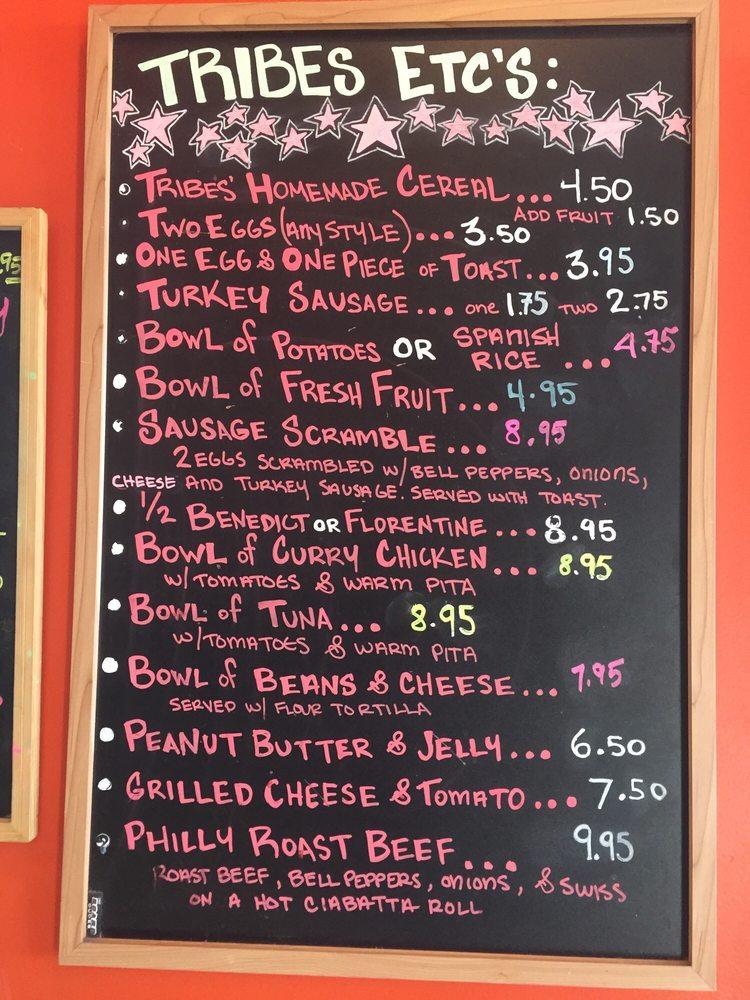 TRIBES ETC'S:
TRIBES' HOMEMADE CEREAL... 4.50
ADD FRUIT 1.50
TWO EGGS (ANY STYLE)... 3.50
ONE EGG & ONE PIECE OF TOAST... 3.95
TURKEY SAUSAGE... ONE 1.75 TWO 2.75
BOWL of POTATOES OR SPANISH RICE ... 4.75
BOWL of FRESH FRUIT... 4.95
SAUSAGE SCRAMBLE ... 8.95
2 EGGS SCRAMBLED W/ BELL PEPPERS, ONIONS,
CHEESE AND TURKEY SAUSAGE. SERVED WITH TOAST.
1/2 BENEDICT OR FLORENTINE ... 8.95
BOWL of CURRY CHICKEN... 8.95
W/ TOMATOES & WARM PITA
BOWL of TUNA... 8.95
W/ TOMATOES & WARM PITA
BOWL of BEANS & CHEESE... 7.95
SERVED W/ FLOUR TORTILLA
PEANUT BUTTER & JELLY... 6.50
GRILLED CHEESE & TOMATO... 7.50
PHILLY ROAST BEEF... 9.95
ROAST BEEF, BELL PEPPERS, ONIONS, & SWISS
ON A HOT CIABATTA ROLL